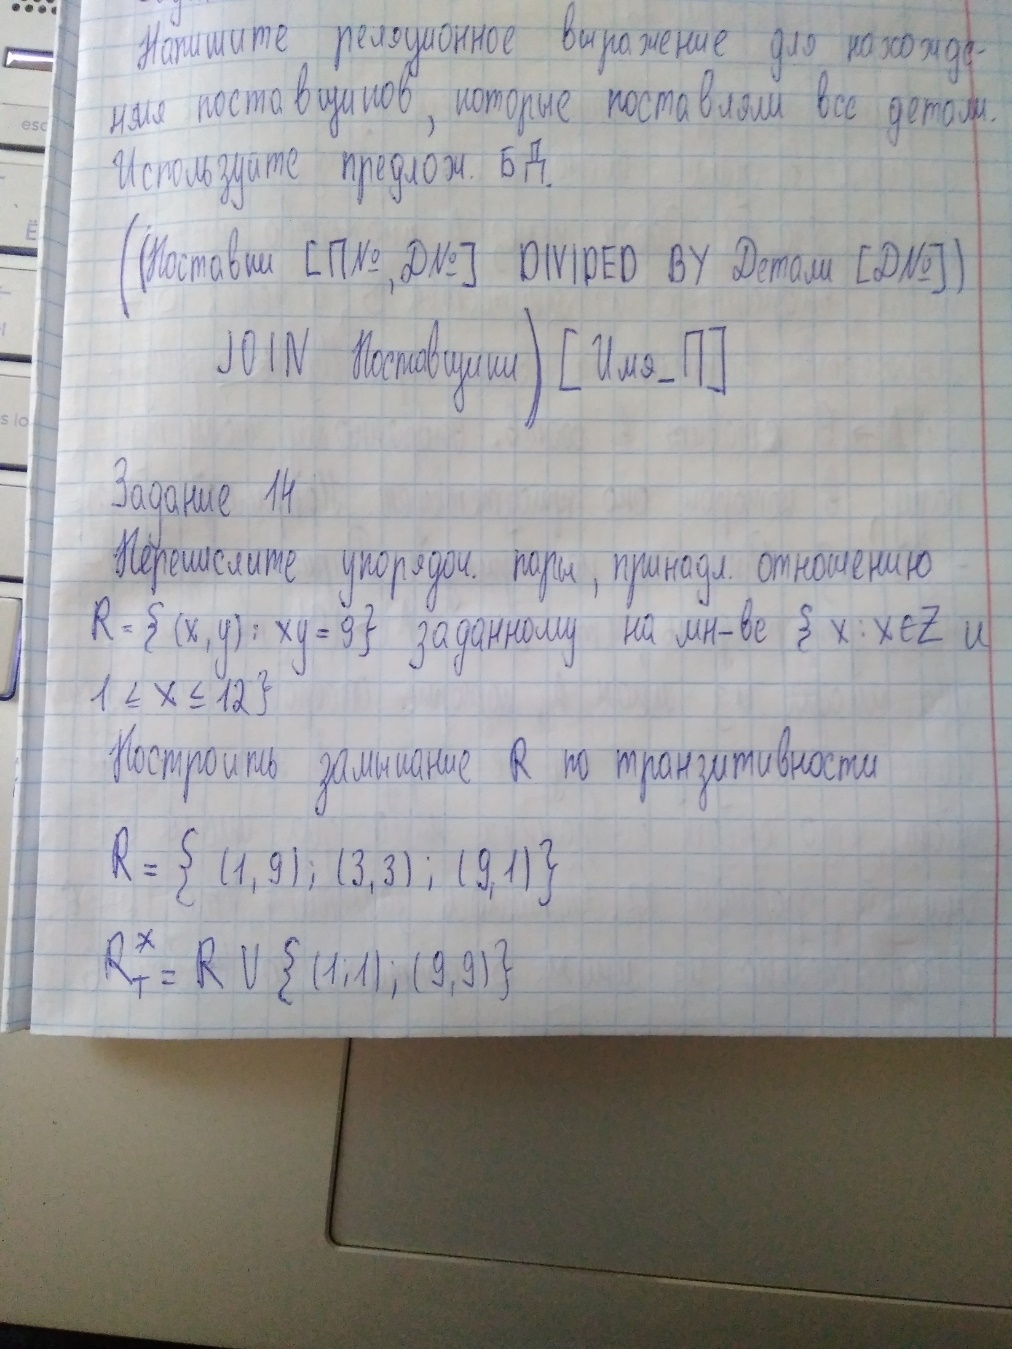 Напишите реляционное выражение для нахожде-
ния поставщиков, которые поставляли все детали.
Используйте предлож. БД.
((Поставки [П№, Д№] DIVIDED BY Детали [Д№])
JOIN Поставщики) [Имя_П]
Задание 14
Перечислите упорядоч. пары, принадл. отношению
R = {(x,y): xy = 9} заданному на мн-ве {x : x∈Z и
1 ≤ x ≤ 12}
Построить замыкание R по транзитивности
R = { (1,9); (3,3); (9,1)}
R^x_T = R ∪ {(1;1); (9,9)}
esc